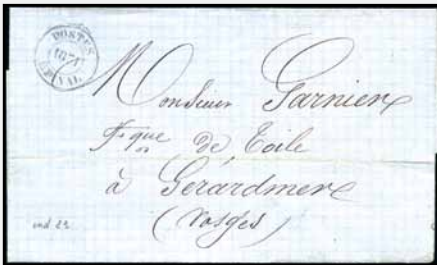 POSTES
1871
EPINAL
Monsieur Garnier
Fque de Toile
à Gerardmer
(Vosges)
ind 29